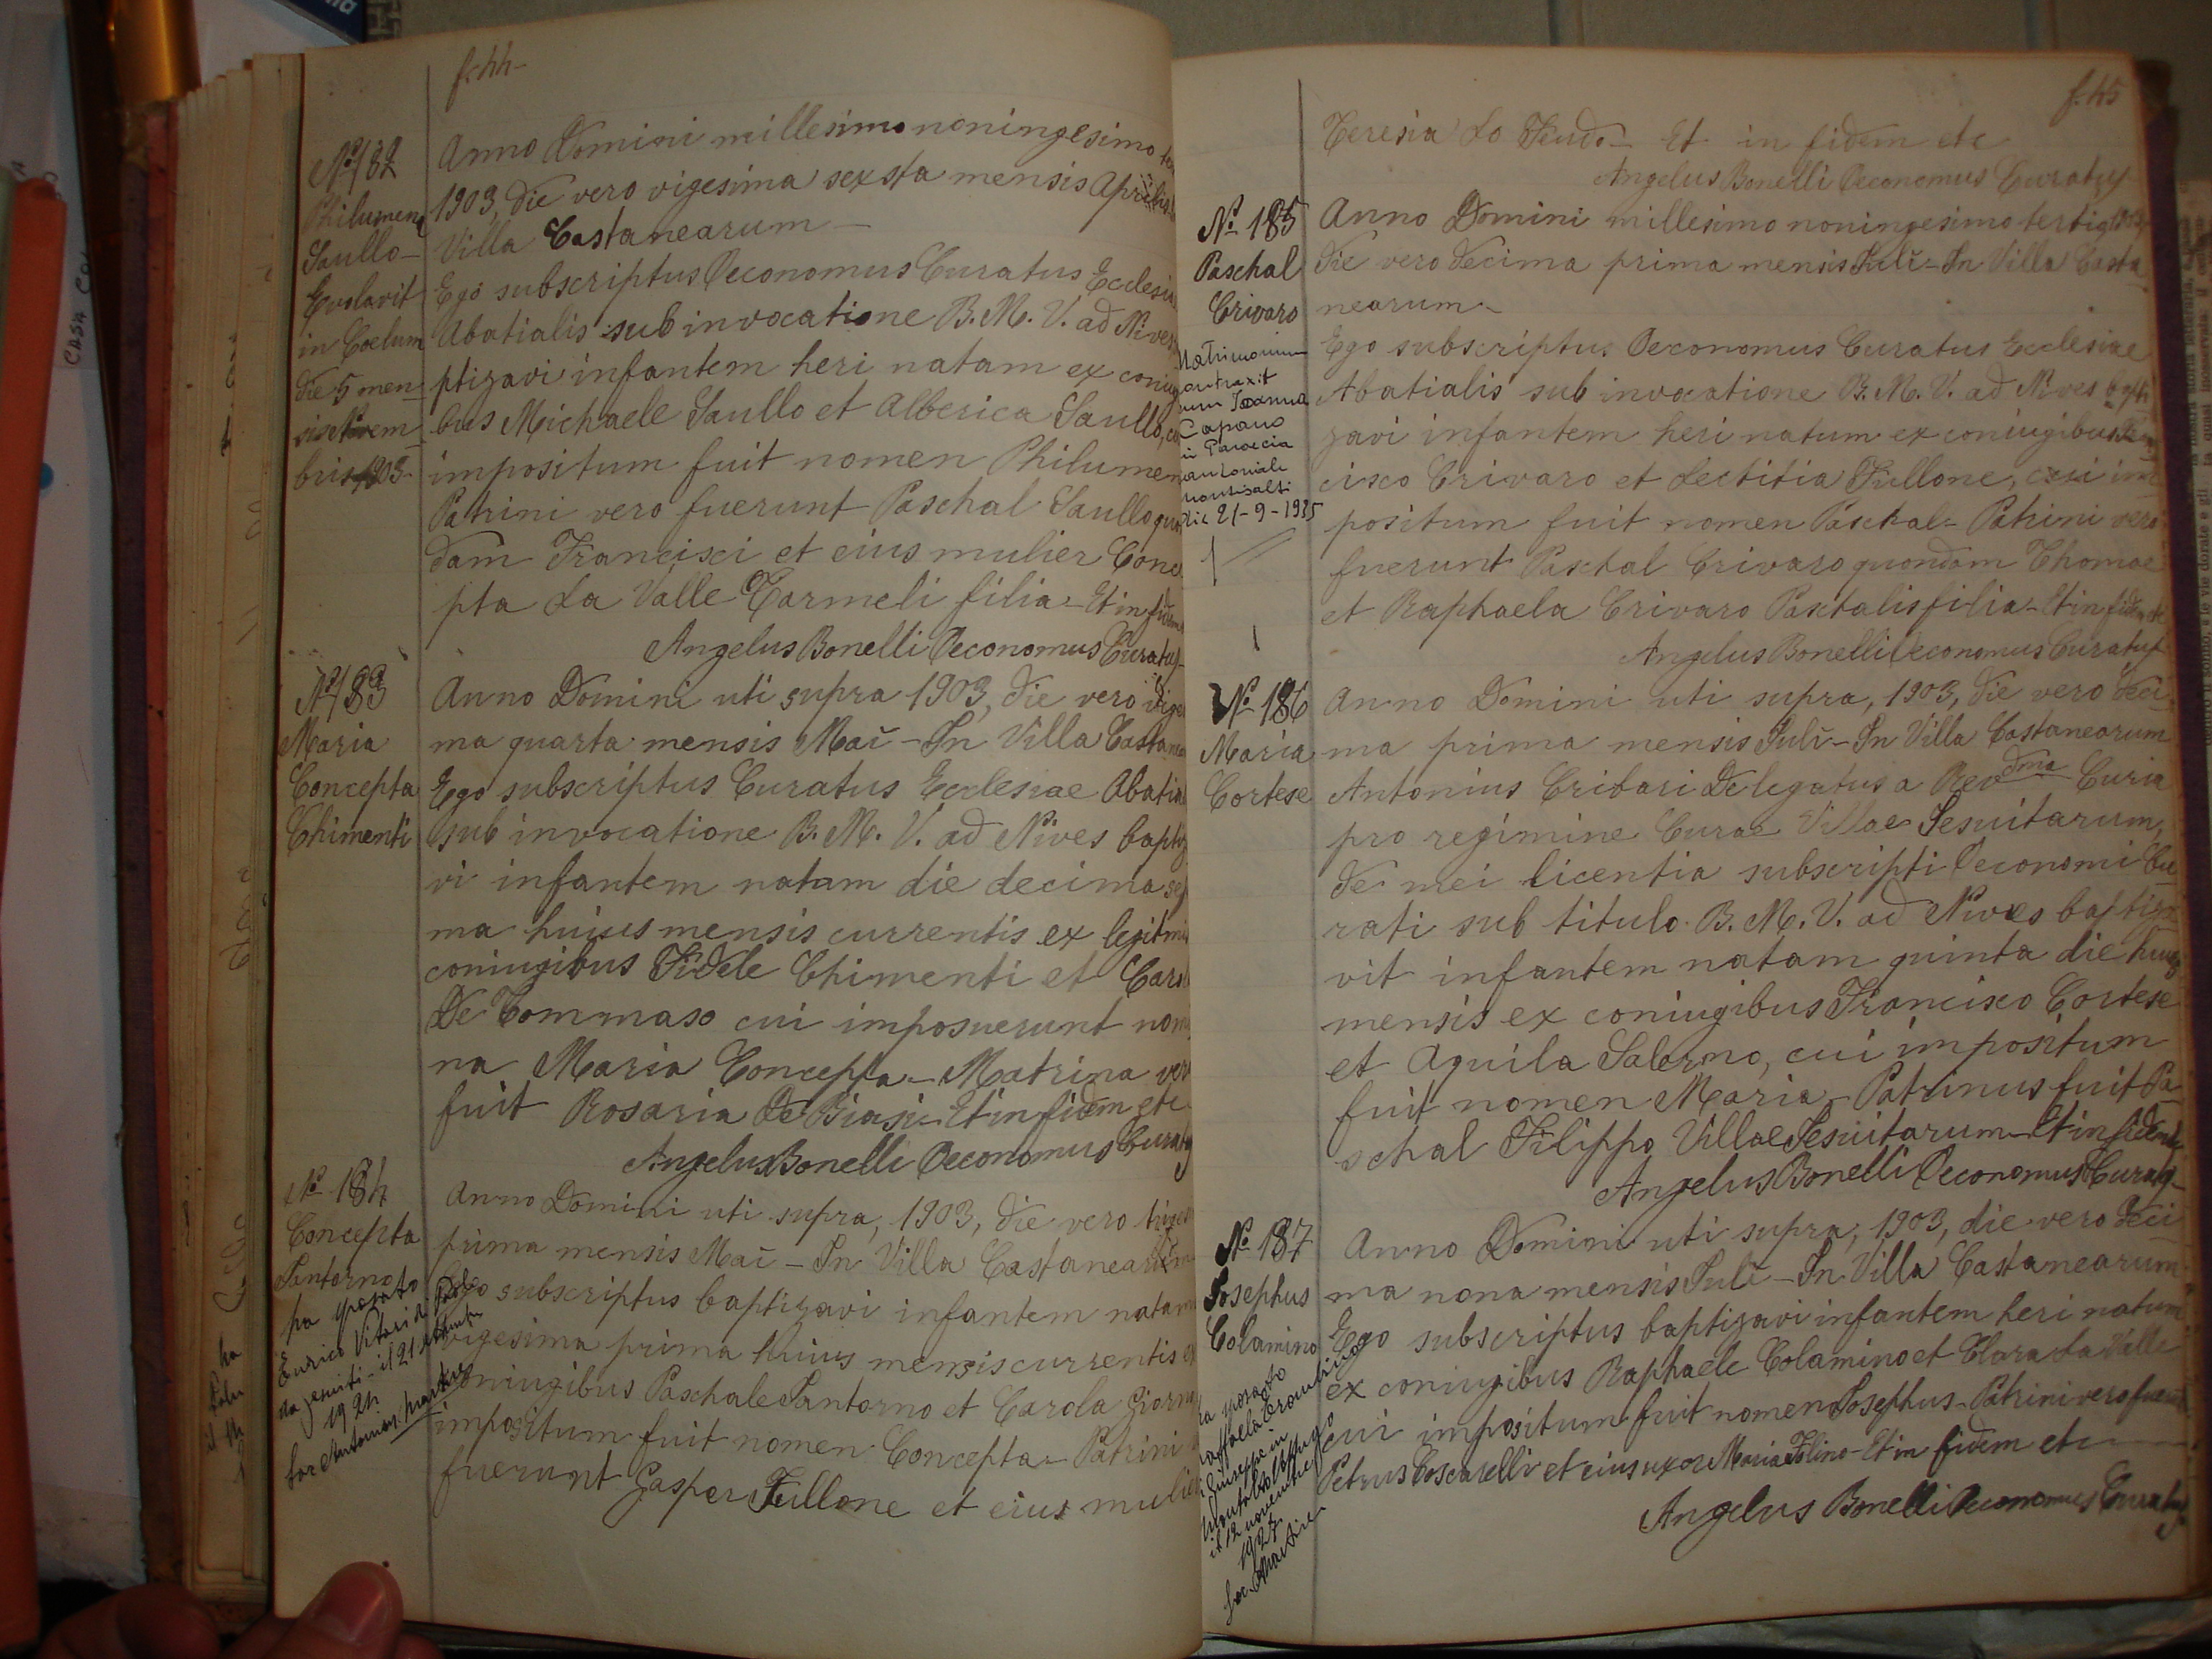 f. 44-
Nº 182
Philumena
Saullo-
Evolavit
in Coelum
die 5 men-
sis Novem
bris 1903-
Anno Domini millesimo noningesimo
1903, die vero vigesima sexsta mensis Aprilis
Villa Castanearum-
Ego subscriptus Oeconomus Curatus Ecclesiae
Abatialis sub invocatione B. M. V. ad Nives
ptizavi infantem heri natam ex coniugi
bus Michaele Saullo et Alberica Saullo,
impositum fuit nomen Philumen
Patrini vero fuerunt Paschal Saullo quon
dam Francisci et eius mulier Conce
pta La Valle Carmeli filia- Et in fidem
Angelus Bonelli Oeconomus Curatus-
Nº 183
Maria
Concepta
Chimenti
Anno Domini uti supra 1903, die vero vige
ma quarta mensis Maĭ - In Villa Castanea
Ego subscriptus Curatus Ecclesiae Abatia
sub invocatione B. M. V. ad Nives baptiz
vi infantem natam die decima sep
ma huius mensis currentis ex legitimis
coniugibus Fidele Chimenti et Caro
De Tommaso cui imposuerunt nomi
na Maria Concepta- Matrina vero
fuit Rosaria De Biasi- Et in fidem etc
Angelus Bonelli Oeconomus Curatus
Nº 184
Concepta
Santorno
ha sposato
Enrico Vitari di Paolo
da Gesuiti - il 21
1924
Sac Antonio Martire
Anno Domini uti supra, 1903, die vero trigesi
prima mensis Maĭ - In Villa Castanearum
Ego subscriptus baptizavi infantem natam
vigesima prima huius mensis currentis ex
coniugibus Paschale Santorno et Carola
impositum fuit nomen Concepta- Patrini
fuerunt Gasper Fullone et eius mulier
f. 45
Teresia Lo Feudo- Et in fidem etc
Angelus Bonelli Oeconomus Curatus
Nº 185
Paschal
Crivaro
Matrimonium
contraxit
cum Joanna
Capano
in Paroecia
Montisalti
die 21-9-1935
Anno Domini millesimo noningesimo tertio, 1903,
die vero decima prima mensis Julĭ - In Villa Casta
nearum-
Ego subscriptus Oeconomus Curatus Ecclesiae
Abatialis sub invocatione B. M. V. ad Nives bapti
zavi infantem heri natum ex coniugibus Fran
cisco Crivaro et Lectitia Fullone, cui im
positum fuit nomen Paschal- Patrini vero
fuerunt Paschal Crivaro quondam Thomae
et Raphaela Crivaro Paschalis filia- Et in fidem etc
Angelus Bonelli Oeconomus Curatus
Nº 186
Maria
Cortese
Anno Domini uti supra, 1903, die vero deci
ma prima mensis Julĭ - In Villa Castanearum
Antonius Cribari Delegatus a Revdma Curia
pro regimine Curae Villae Jesuitarum,
de mei licentia subscripti Oeconomi Cu
rati sub titulo B. M. V. ad Nives baptiza
vit infantem natam quinta die huius
mensis ex coniugibus Francisco Cortese
et Aquila Salerno, cui impositum
fuit nomen Maria- Patrinus fuit Pa
schal Filippo Villae Jesuitarum- Et in fidem etc
Angelus Bonelli Oeconomus Curatus-
Nº 187
Josephus
Colamino
ha sposato
Raffaella
di Giuseppe in
Montalto Uffugo
il 12 novembre
1927
Sac. AMartire
Anno Domini uti supra, 1903, die vero deci
ma nona mensis Julĭ - In Villa Castanearum
Ego subscriptus baptizavi infantem heri natum
ex coniugibus Raphaele Colamino et Clara La Valle
cui impositum fuit nomen Josephus- Patrini vero fuerunt
Petrus Coscarelli et eius uxor Maria Folino- Et in fidem etc
Angelus Bonelli Oeconomus Curatus